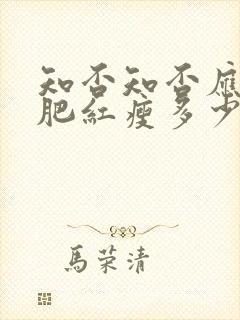 知否知否應
肥紅瘦多少
馬荣清